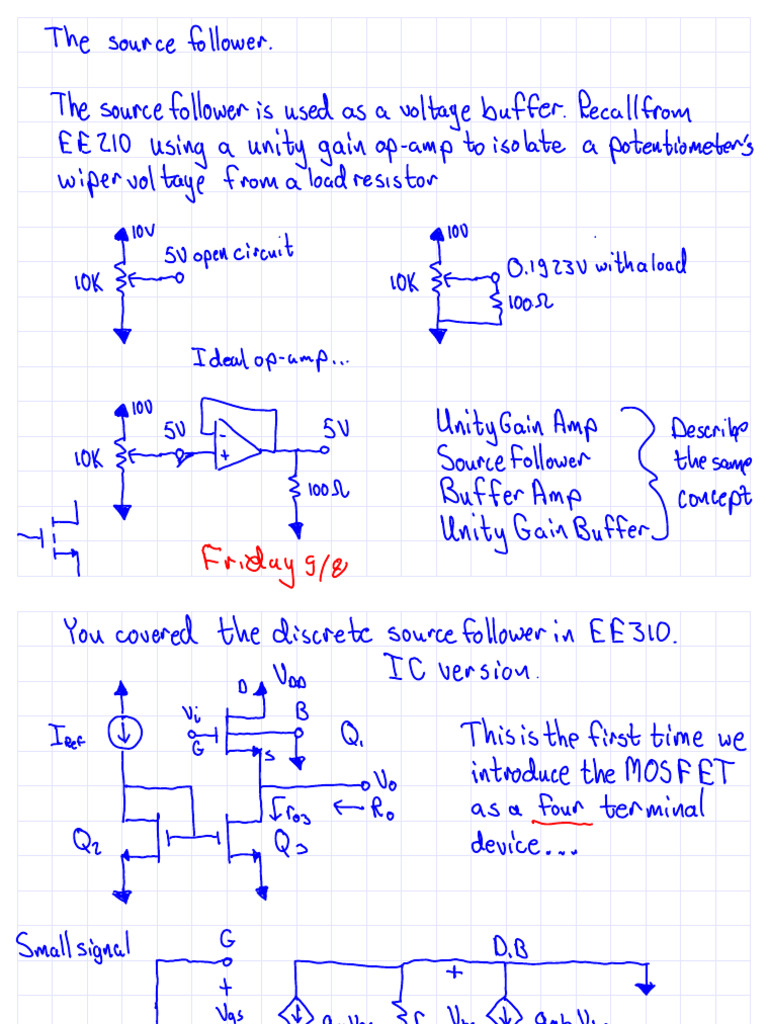 The source follower.
The source follower is used as a voltage buffer. Recall from
EE210 using a unity gain op-amp to isolate a potentiometer's
wiper voltage from a load resistor
10V
5V open circuit
10K
10V
0.1923V with a load
10K
100Ω
Ideal op-amp...
10V
5V
5V
10K
-
+
100Ω
Unity Gain Amp
Source Follower
Buffer Amp
Unity Gain Buffer
Describe
the same
concept
Friday 9/8
You covered the discrete source follower in EE310.
IC version.
D
VDD
Vi
B
IREF
G
Q1
S
Vo
ro3
Ro
Q2
Q3
This is the first time we
introduce the MOSFET
as a four terminal
device...
Small signal
G
D,B
+
+
Vgs